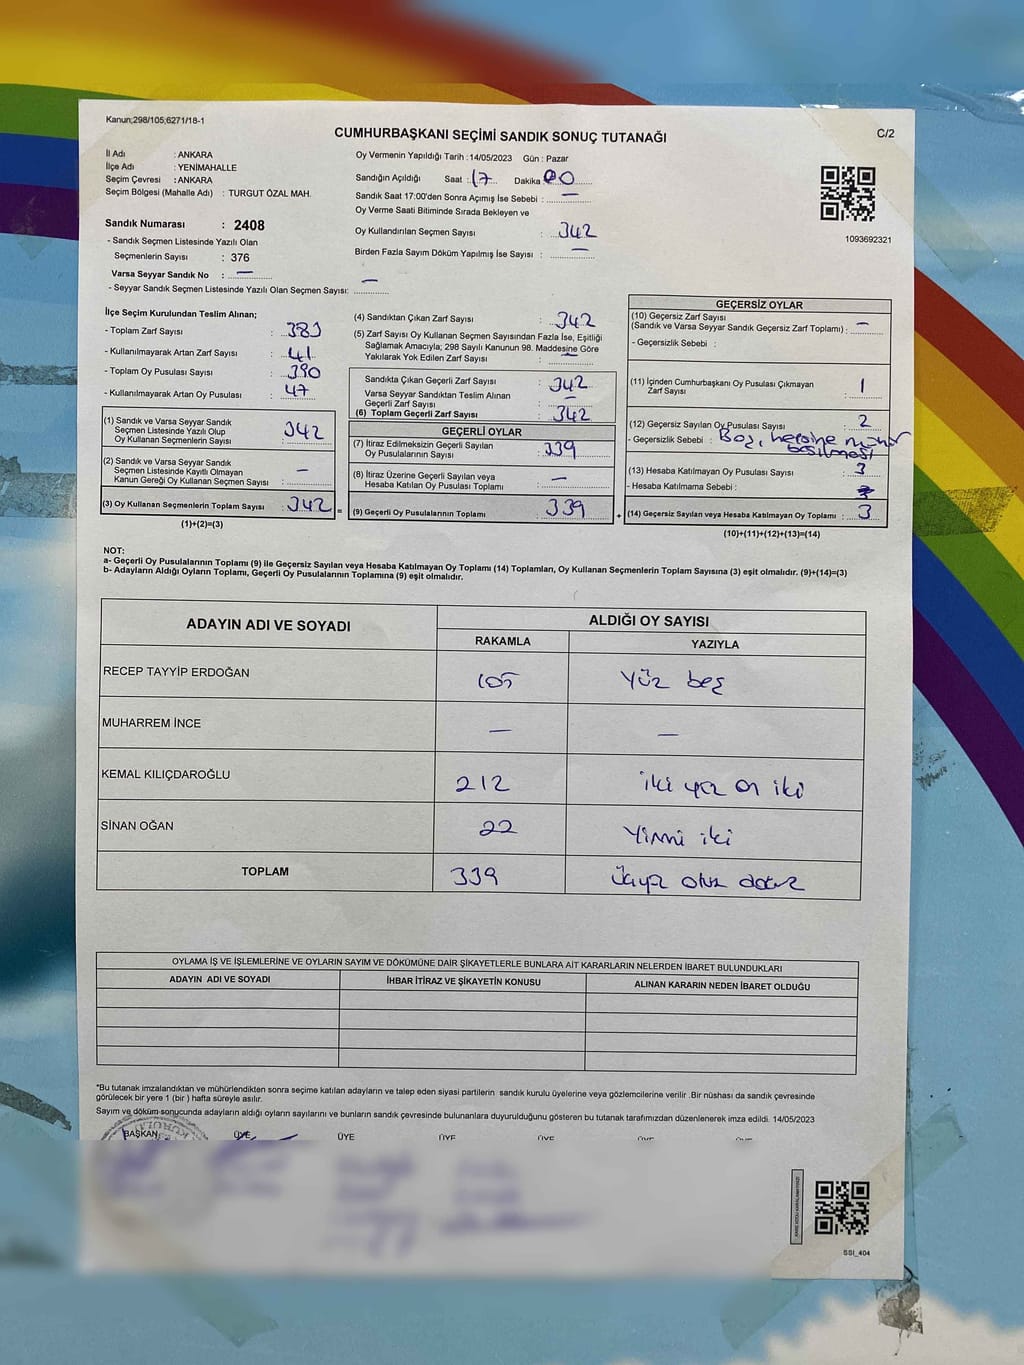 Kanun;298/105;6271/18-1
CUMHURBAŞKANI SEÇİMİ SANDIK SONUÇ TUTANAĞI
C/2
İl Adı : ANKARA
İlçe Adı : YENİMAHALLE
Seçim Çevresi : ANKARA
Seçim Bölgesi (Mahalle Adı) : TURGUT ÖZAL MAH.
Sandık Numarası : 2408
- Sandık Seçmen Listesinde Yazılı Olan
Seçmenlerin Sayısı : 376
Varsa Seyyar Sandık No : —
- Seyyar Sandık Seçmen Listesinde Yazılı Olan Seçmen Sayısı: —
Oy Vermenin Yapıldığı Tarih :14/05/2023 Gün : Pazar
Sandığın Açıldığı Saat : 17 Dakika 00
Sandık Saat 17:00'den Sonra Açımış İse Sebebi : —
Oy Verme Saati Bitiminde Sırada Bekleyen ve
Oy Kullandırılan Seçmen Sayısı : 342
Birden Fazla Sayım Döküm Yapılmış İse Sayısı : —
1093692321
İlçe Seçim Kurulundan Teslim Alınan;
- Toplam Zarf Sayısı : 383
- Kullanılmayarak Artan Zarf Sayısı : 41
- Toplam Oy Pusulası Sayısı : 390
- Kullanılmayarak Artan Oy Pusulası : 47
(1) Sandık ve Varsa Seyyar Sandık
Seçmen Listesinde Yazılı Olup
Oy Kullanan Seçmenlerin Sayısı : 342
(2) Sandık ve Varsa Seyyar Sandık
Seçmen Listesinde Kayıtlı Olmayan
Kanun Gereği Oy Kullanan Seçmen Sayısı : —
(3) Oy Kullanan Seçmenlerin Toplam Sayısı : 342 =
(1)+(2)=(3)
(4) Sandıktan Çıkan Zarf Sayısı : 342
(5) Zarf Sayısı Oy Kullanan Seçmen Sayısından Fazla İse, Eşitliği
Sağlamak Amacıyla; 298 Sayılı Kanunun 98. Maddesine Göre
Yakılarak Yok Edilen Zarf Sayısı : —
Sandıkta Çıkan Geçerli Zarf Sayısı : 342
Varsa Seyyar Sandıktan Teslim Alınan
Geçerli Zarf Sayısı : —
(6) Toplam Geçerli Zarf Sayısı : 342
GEÇERLİ OYLAR
(7) İtiraz Edilmeksizin Geçerli Sayılan
Oy Pusulalarının Sayısı : 339
(8) İtiraz Üzerine Geçerli Sayılan veya
Hesaba Katılan Oy Pusulası Toplamı : —
(9) Geçerli Oy Pusulalarının Toplamı : 339 +
GEÇERSİZ OYLAR
(10) Geçersiz Zarf Sayısı
(Sandık ve Varsa Seyyar Sandık Geçersiz Zarf Toplamı) : —
- Geçersizlik Sebebi :
(11) İçinden Cumhurbaşkanı Oy Pusulası Çıkmayan
Zarf Sayısı : 1
(12) Geçersiz Sayılan Oy Pusulası Sayısı : 2
- Geçersizlik Sebebi : Boş, hepsine mühür
basılması
(13) Hesaba Katılmayan Oy Pusulası Sayısı : 3
- Hesaba Katılmama Sebebi :
(14) Geçersiz Sayılan veya Hesaba Katılmayan Oy Toplamı : 3
(10)+(11)+(12)+(13)=(14)
NOT:
a- Geçerli Oy Pusulalarının Toplamı (9) ile Geçersiz Sayılan veya Hesaba Katılmayan Oy Toplamı (14) Toplamları, Oy Kullanan Seçmenlerin Toplam Sayısına (3) eşit olmalıdır. (9)+(14)=(3)
b- Adayların Aldığı Oyların Toplamı, Geçerli Oy Pusulalarının Toplamına (9) eşit olmalıdır.
ADAYIN ADI VE SOYADI
ALDIĞI OY SAYISI
RAKAMLA YAZIYLA
RECEP TAYYİP ERDOĞAN 105 Yüz beş
MUHARREM İNCE — —
KEMAL KILIÇDAROĞLU 212 iki yüz on iki
SİNAN OĞAN 22 Yirmi iki
TOPLAM 339 Üçyüz otuz dokuz
OYLAMA İŞ VE İŞLEMLERİNE VE OYLARIN SAYIM VE DÖKÜMÜNE DAİR ŞİKAYETLERLE BUNLARA AİT KARARLARIN NELERDEN İBARET BULUNDUKLARI
ADAYIN ADI VE SOYADI İHBAR İTİRAZ VE ŞİKAYETİN KONUSU ALINAN KARARIN NEDEN İBARET OLDUĞU
*Bu tutanak imzalandıktan ve mühürlendikten sonra seçime katılan adayların ve talep eden siyasi partilerin sandık kurulu üyelerine veya gözlemcilerine verilir .Bir nüshası da sandık çevresinde
görülecek bir yere 1 (bir ) hafta süreyle asılır.
Sayım ve döküm sonucunda adayların aldığı oyların sayılarını ve bunların sandık çevresinde bulunanlara duyurulduğunu gösteren bu tutanak tarafımızdan düzenlenerek imza edildi. 14/05/2023
BAŞKAN ÜYE ÜYE ÜYE ÜYE ÜYE ÜYE
SSI_404